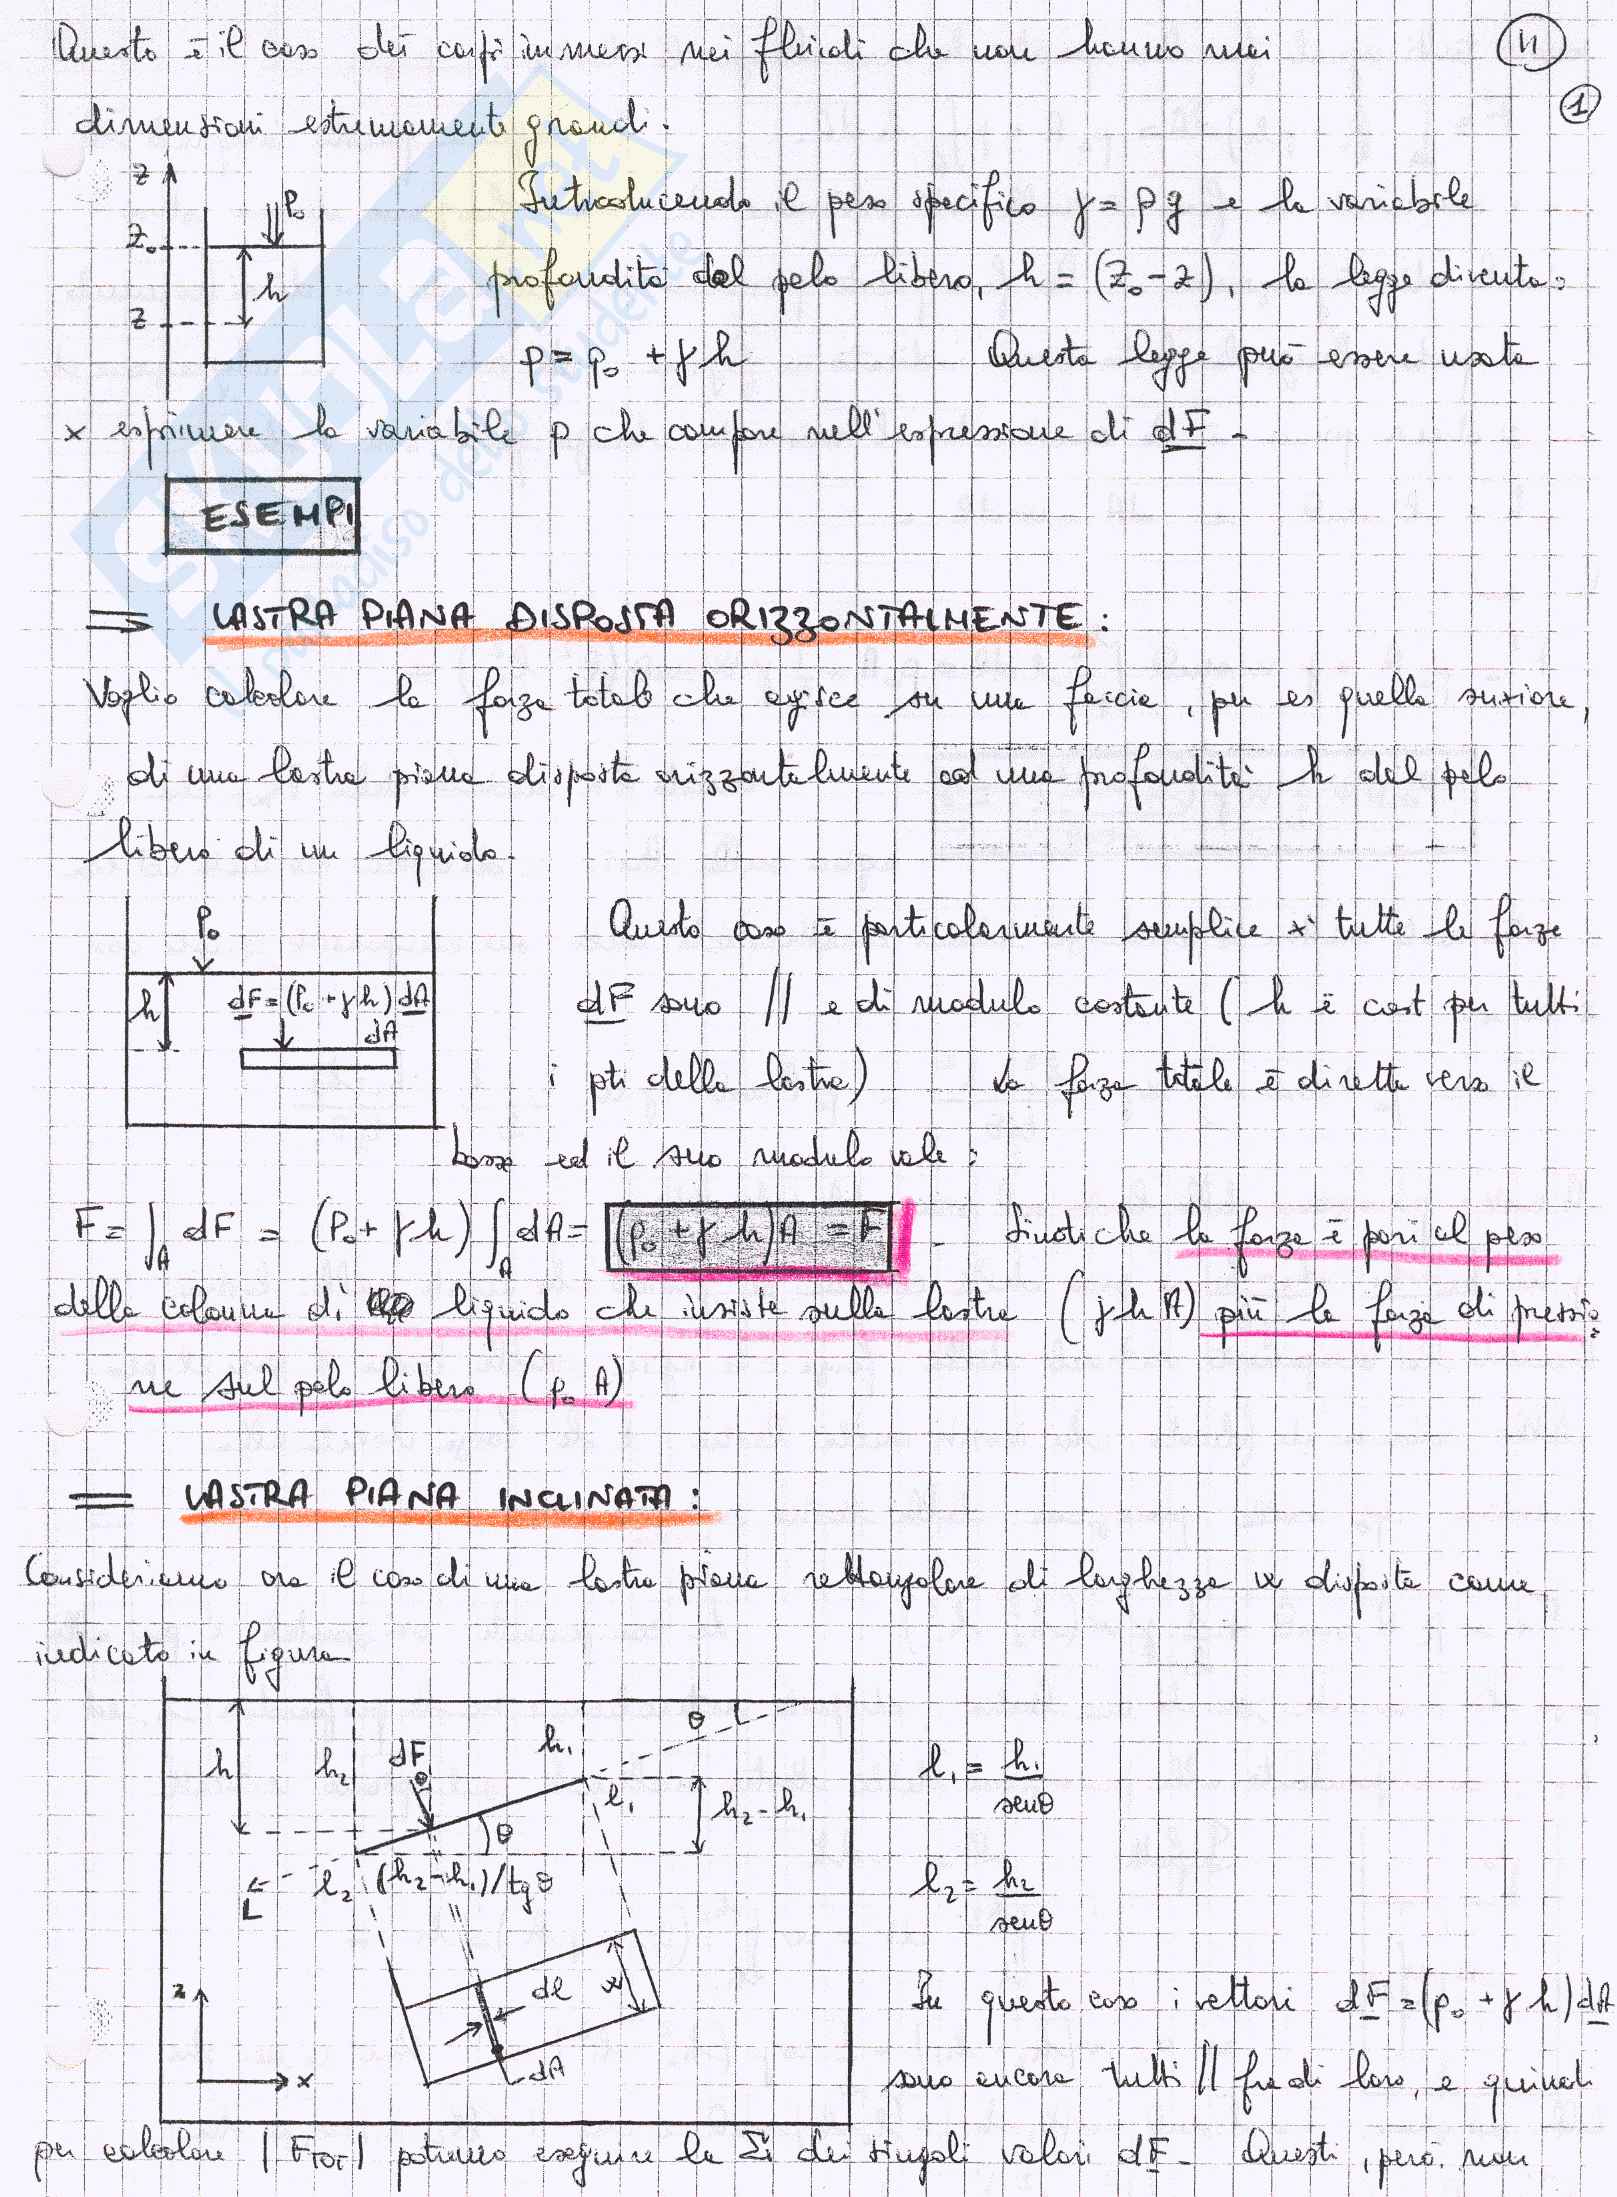 Questo è il caso dei corpi immersi nei fluidi che non hanno mai
11
1
dimensioni estremamente grandi.
z
P₀
z₀
h
z
Introducendo il peso specifico γ = ρg e la variabile
profondità dal pelo libero, h = (z₀-z), la legge diventa:
p = p₀ + γh Questa legge può essere usata
x esprimere la variabile p che compare nell'espressione di dF -
ESEMPI
⇒ LASTRA PIANA DISPOSTA ORIZZONTALMENTE :
Voglio calcolare la forza totale che agisce su una faccia, per es quella
di una lastra piana disposta orizzontalmente ad una profondità h dal pelo
libero di un liquido.
P₀
h
dF = (P₀ + γh) dA
dA
Questo caso è particolarmente semplice xi tutte le forze
dF sono // e di modulo costante ( h è cost per tutti
i pti della lastra) La forza totale è diretta verso il
basso ed il suo modulo vale :
F = ∫_A dF = (P₀ + γh) ∫_A dA = (p₀ + γh)A = F - Si noti che la forza è pari al peso
della colonna di liquido che insiste sulla lastra (γhA) più la forza di pressio
ne sul pelo libero (p₀ A)
= LASTRA PIANA INCLINATA :
Consideriamo ora il caso di una lastra piana rettangolare di larghezza w disposta come
indicato in figura
θ
h
h₂
dF
h₁
l₁
h₂-h₁
θ
l₂ (h₂-h₁)/tgθ
L
dl
w
dA
z
x
l₁ = h₁/senθ
l₂ = h₂/senθ
In questo caso i vettori dF = (p₀ + γh) dA
sono ancora tutti // fra di loro, e quindi
per calcolare |F_TOT| potremo eseguire la Σ dei singoli valori dF - Questi, però, non